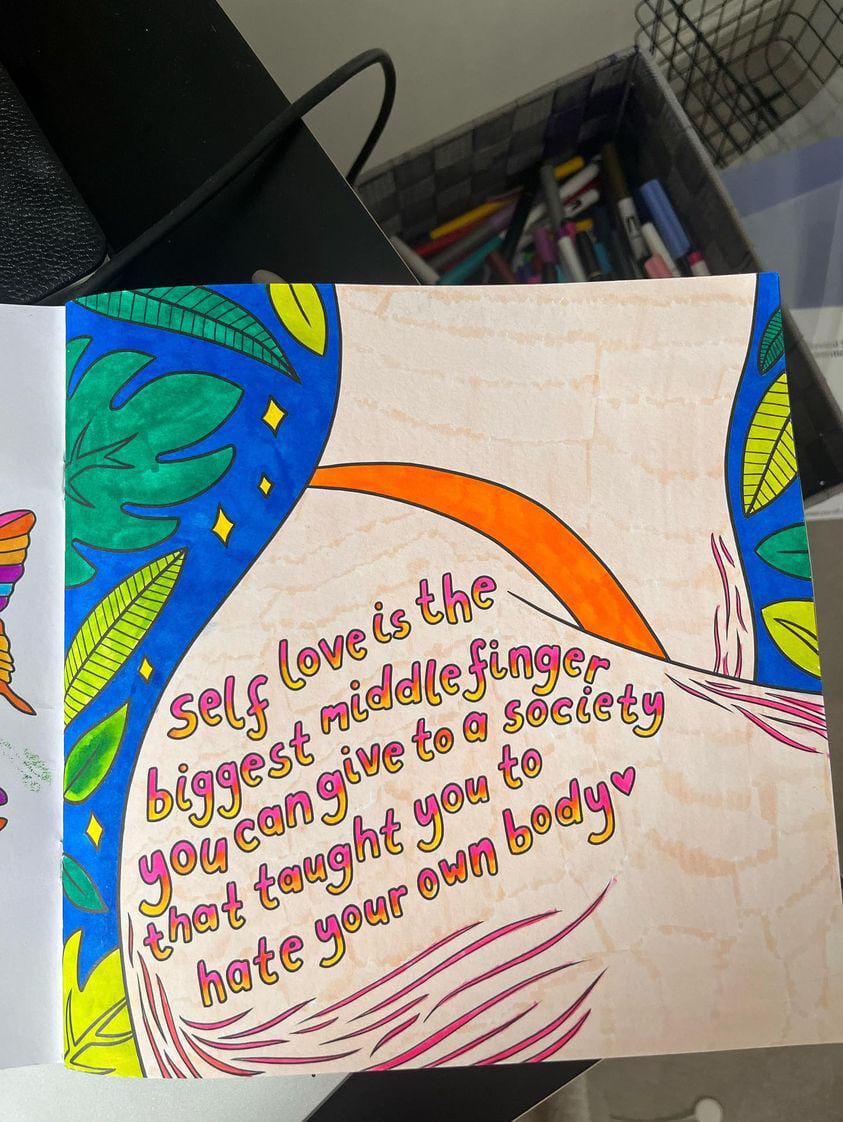 self love is the
biggest middle finger
you can give to a society
that taught you to
hate your own body♥